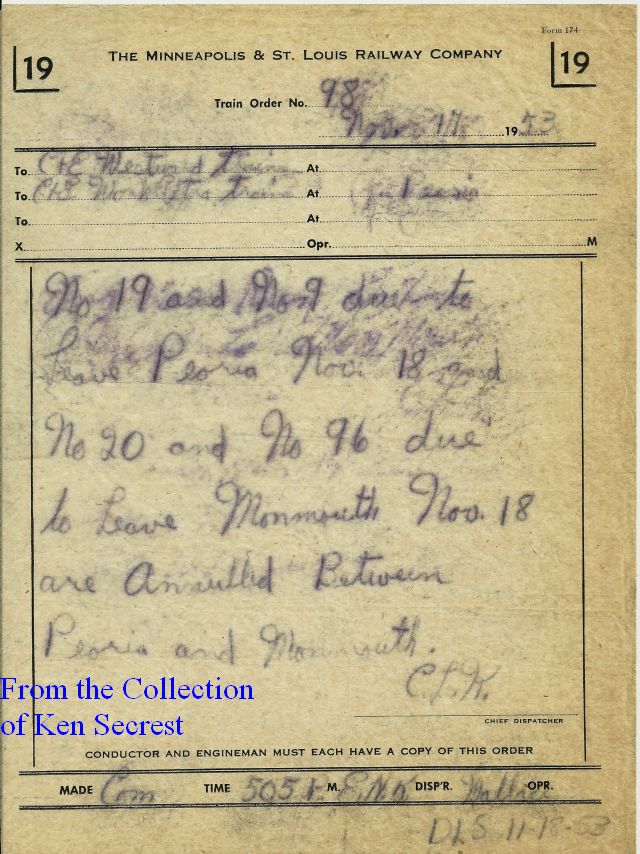 Form 174
19 THE MINNEAPOLIS & ST. LOUIS RAILWAY COMPANY 19
Train Order No. 98
Nov. 17 1953
To C&E Westward train At
To C&E Work Extra train At Peoria
To At
X Opr. M
No 19 and No 9 due to
Leave Peoria Nov. 18 and
No 20 and No 96 due
to Leave Monmouth Nov. 18
are Annulled Between
Peoria and Monmouth.
C.L.K.
CHIEF DISPATCHER
From the Collection
of Ken Secrest
CONDUCTOR AND ENGINEMAN MUST EACH HAVE A COPY OF THIS ORDER
MADE Com TIME 505 P. M. DISP'R. OPR.
DLS 11-18-53